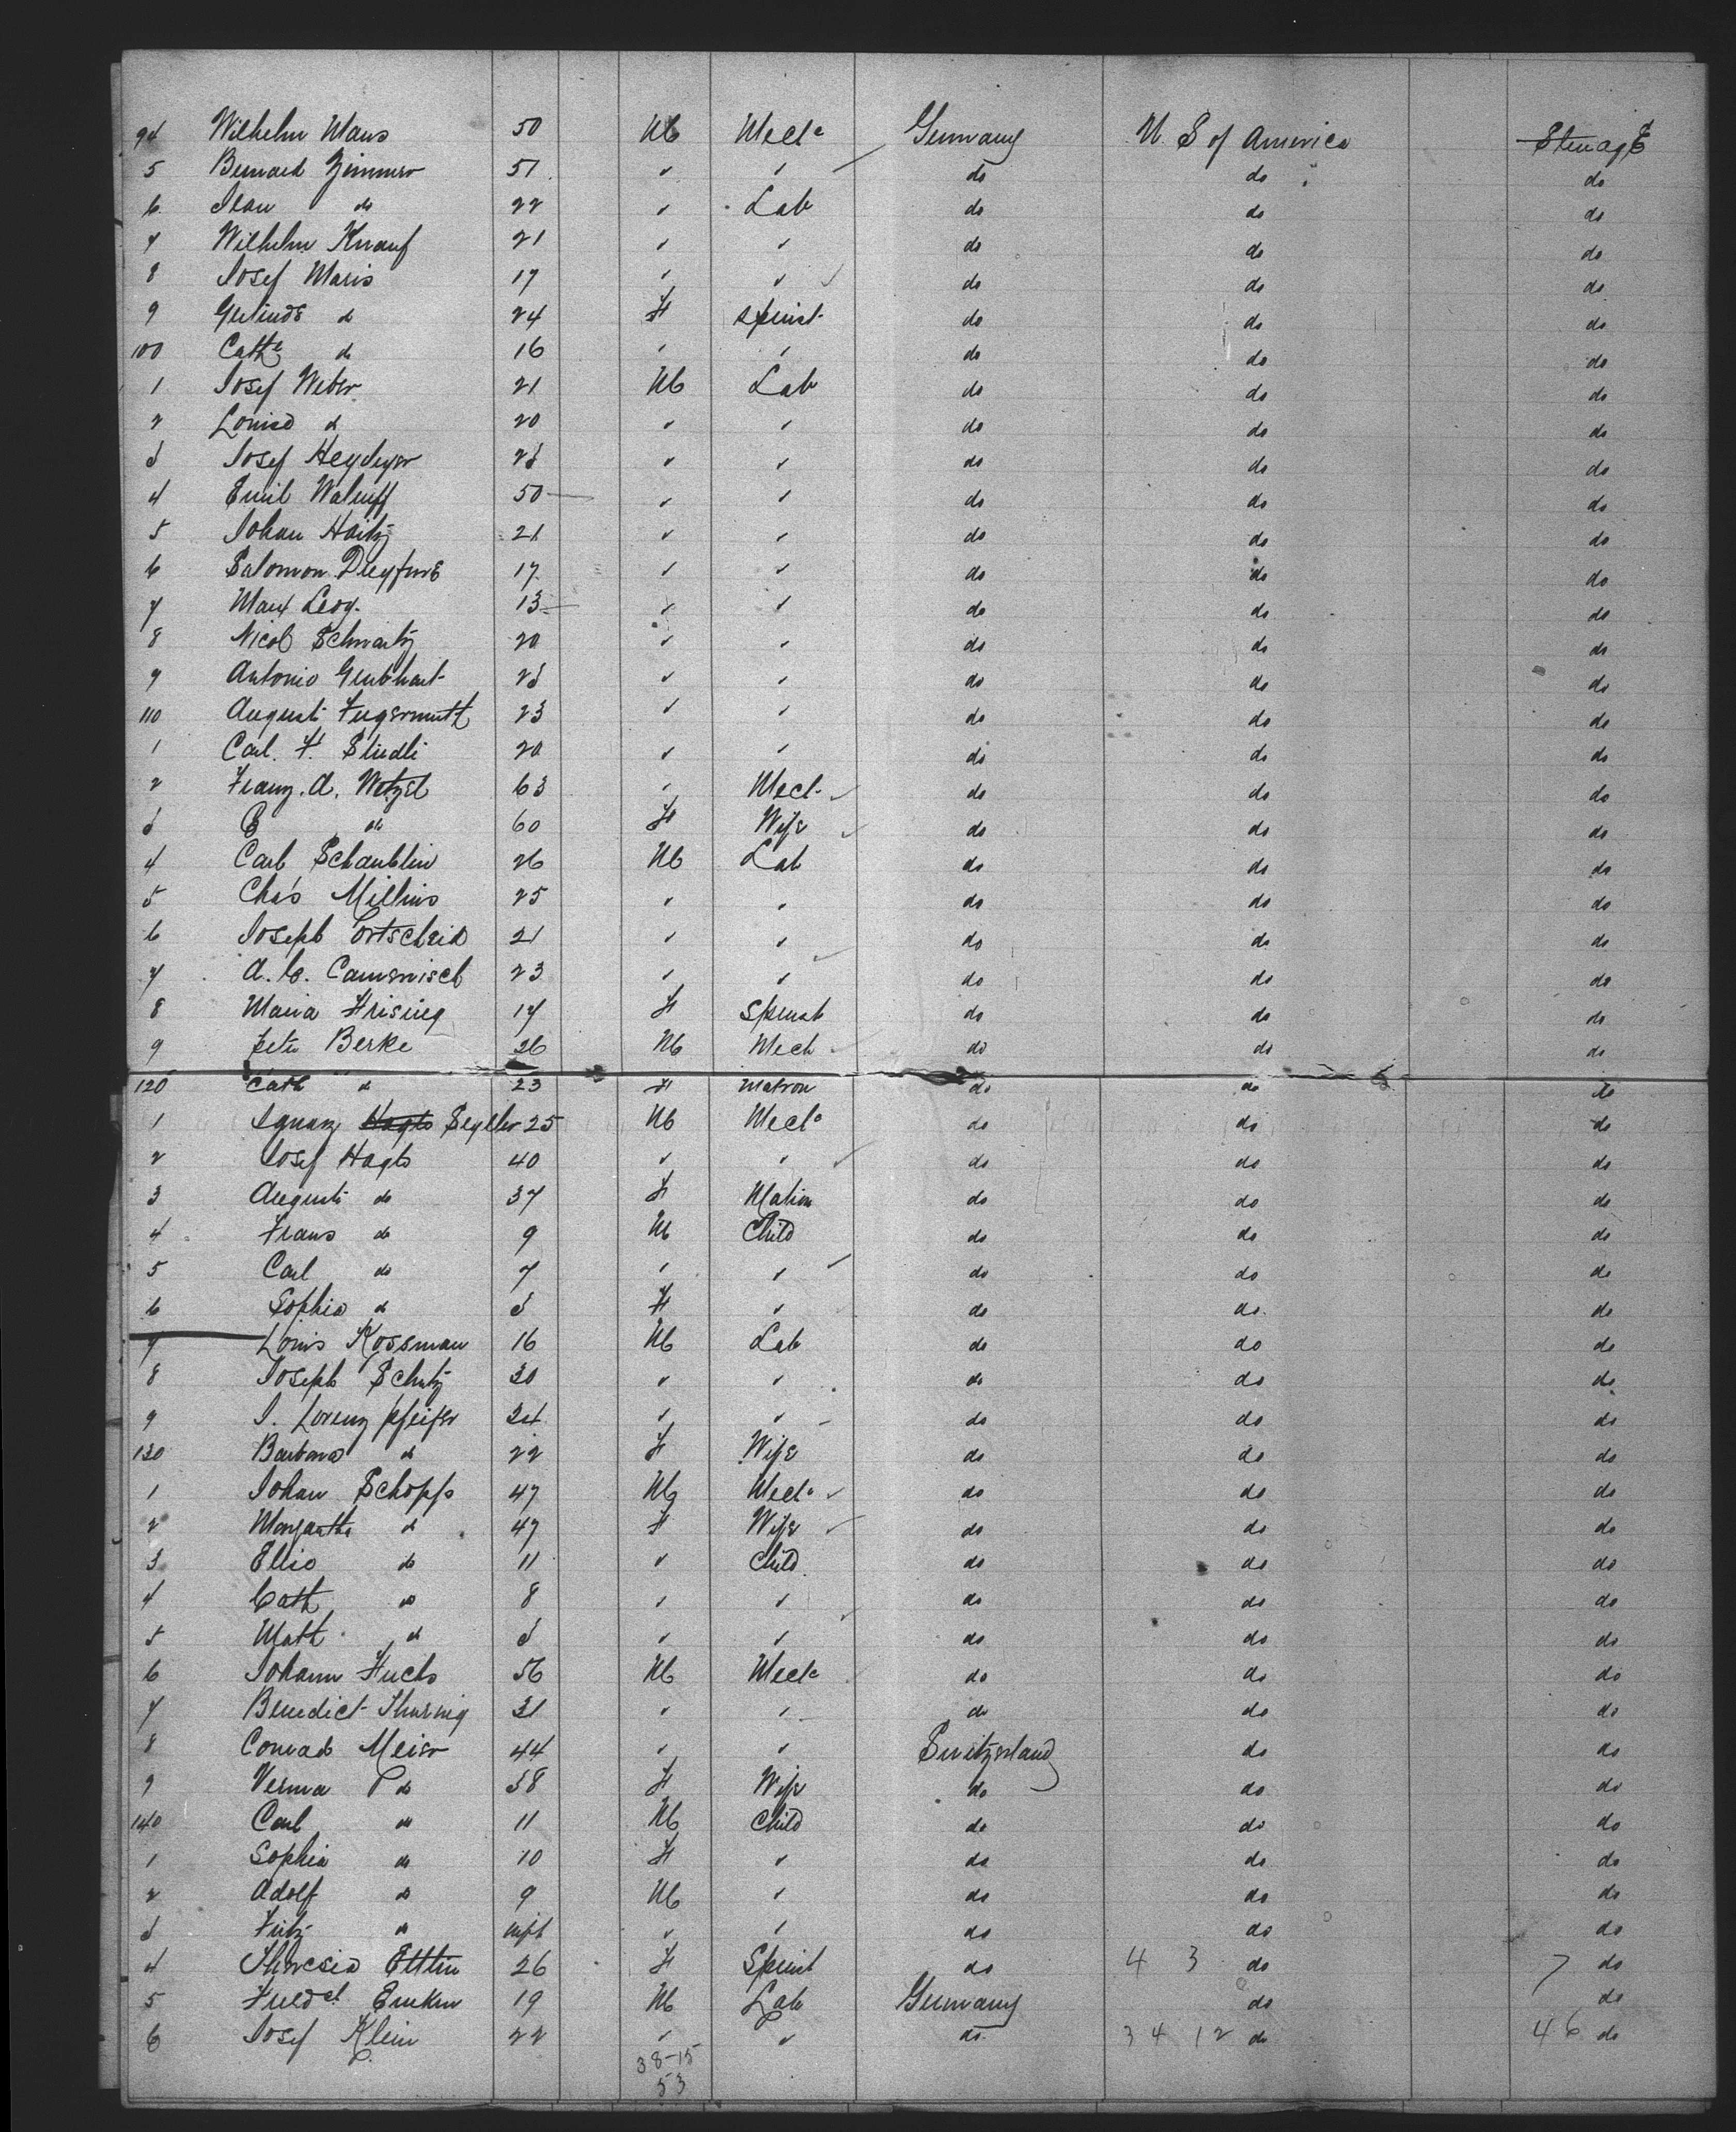 94 Wilhelm Maus 50 M Mech Germany U. S of America Steerage
5 Bernard Zimmer 51 " " do do do
6 Jean do 22 " Lab do do do
7 Wilhelm Knauf 21 " " do do do
8 Josef Maris 17 " " do do do
9 do 24 F Spinst do do do
100 Cathe do 16 " " do do do
1 Josef Weber 21 M Lab do do do
2 Louise do 20 " " do do do
3 Josef 23 " " do do do
4 Emil Walruff 50 " " do do do
5 Johan Haitz 21 " " do do do
6 Salomon Dreyfus 17 " " do do do
7 Max Levy 13 " " do do do
8 Nicol Schwartz 20 " " do do do
9 Antonio 23 " " do do do
110 August 23 " " do do do
1 Carl. F. 20 " " do do do
2 Franz. A. Wetzel 63 " Mech do do do
3 E do 60 F Wife do do do
4 Carl Schaublin 26 M Lab do do do
5 Chas Millius 25 " " do do do
6 Joseph Gortscheid 21 " " do do do
7 A. C. Camenisch 23 " " do do do
8 Maria 17 F Spinst do do do
9 Peter Berke 26 M Mech do do do
120 Cath do 23 F Matron do do do
1 Ignaz Hagts Seyller 25 M Mech do do do
2 Josef Hagts 40 " " do do do
3 August do 37 F Matron do do do
4 Frans do 9 M Child do do do
5 Carl do 7 " " do do do
6 Sophia do 3 F " do do do
7 Louis Kossman 16 M Lab do do do
8 Joseph Schutz 30 " " do do do
9 J. Lorenz Pfeifer 24 " " do do do
130 Barbara do 22 F Wife do do do
1 Johan Schopfs 47 M Mech do do do
2 Margartha do 47 F Wife do do do
3 Elis do 11 " Child do do do
4 Cath do 8 " " do do do
5 Math do 3 " " do do do
6 Johann Fuchs 56 M Mech do do do
7 Benedict Thuring 31 " " do do do
8 Conrad Meier 44 " " Switzerland do do
9 Verena do 38 F Wife do do do
140 Carl do 11 M Child do do do
1 Sophia do 10 F " do do do
2 Adolf do 9 M " do do do
3 Fritz do inft " " do do do
4 Theresia Ettlin 26 F Spinst do 4 3 do 7 do
5 Friedch 19 M Lab Germany do do
6 Josef Klein 22 " " do 34 12 do 46 do
38-15
53